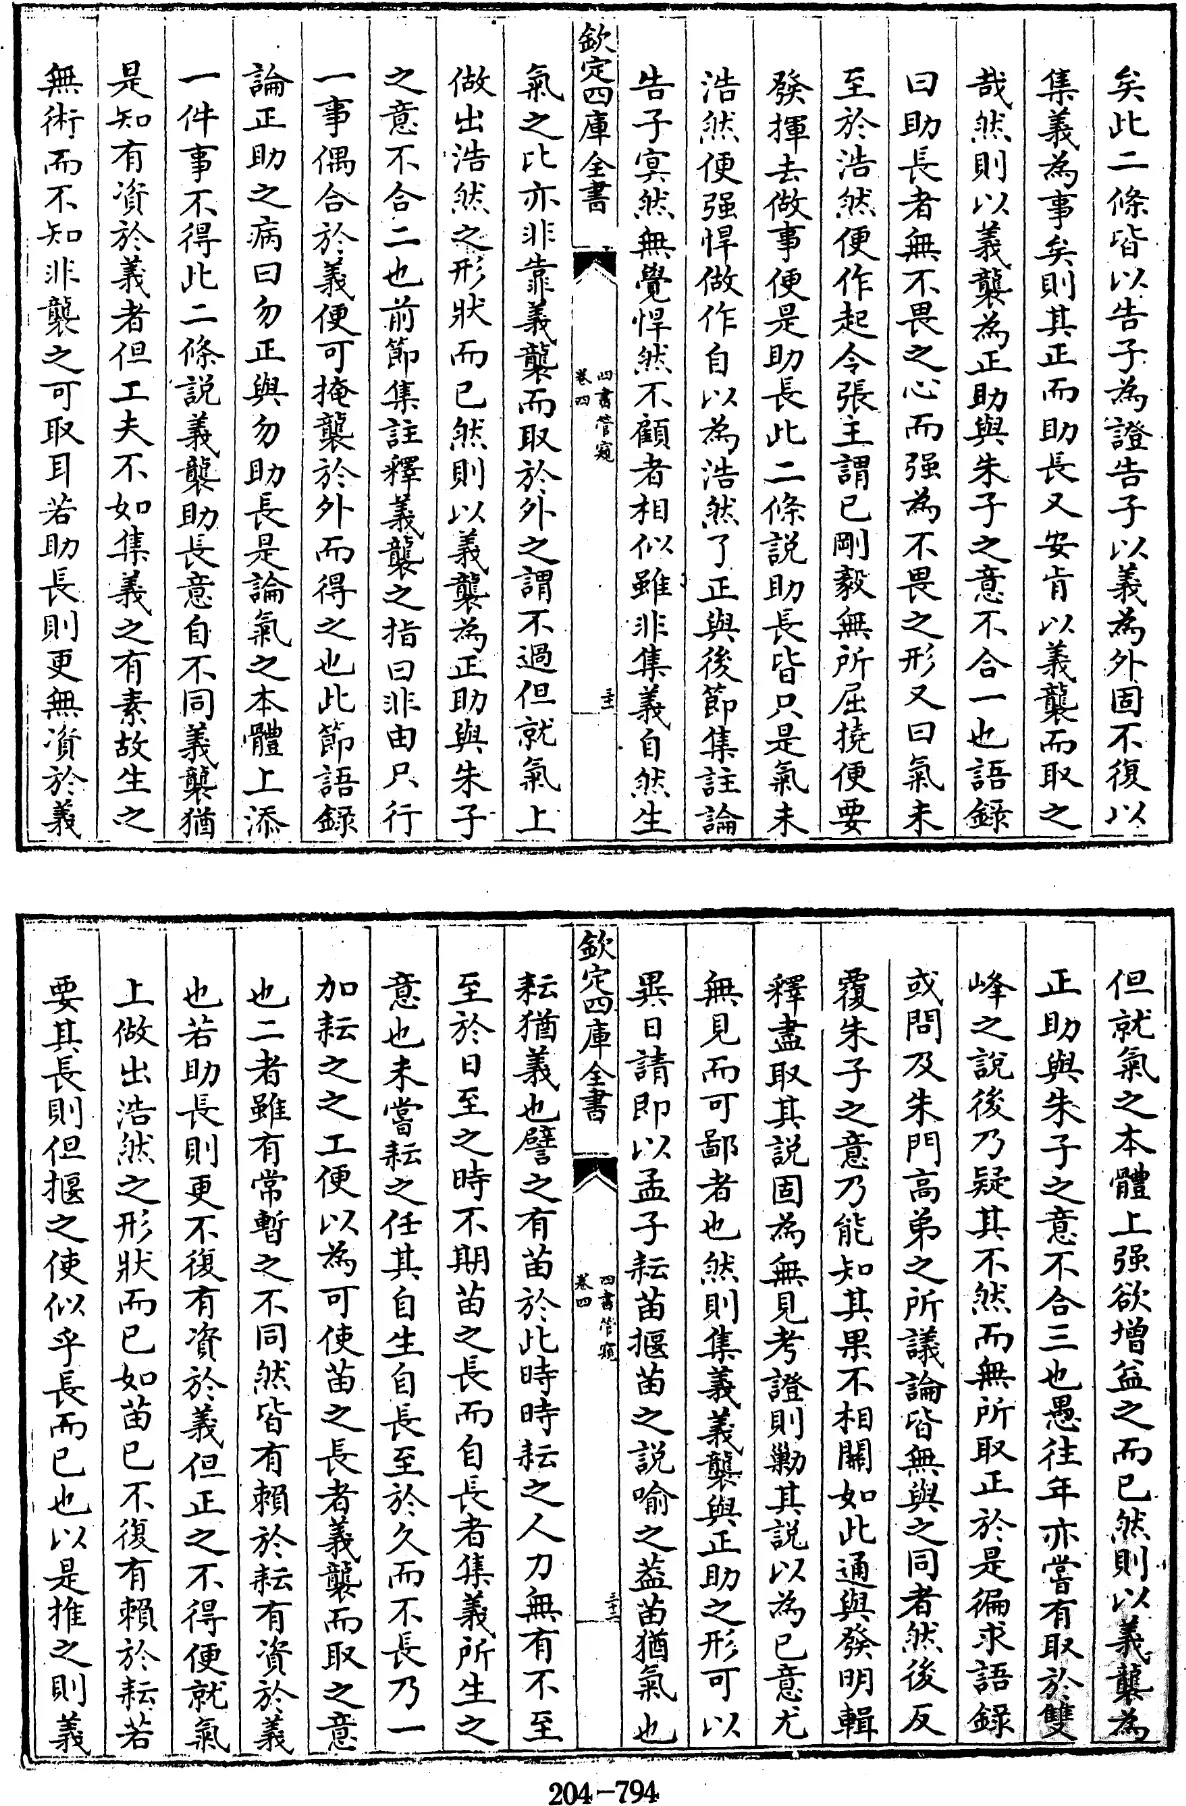 矣此二條皆以告子為證告子以義為外固不復以
集義為事矣則其正而助長又安肯以義襲而取之
哉然則以義襲為正助與朱子之意不合一也語録
曰助長者無不畏之心而强為不畏之形又曰氣未
至於浩然便作起令張主謂已剛毅無所屈撓便要
發揮去做事便是助長此二條説助長皆只是氣未
浩然便强悍做作自以為浩然了正與後節集註論
告子冥然無覺悍然不顧者相似雖非集義自然生
欽定四庫全書
四書管窺
卷四
三十二
氣之比亦非靠義襲而取於外之謂不過但就氣上
做出浩然之形狀而已然則以義襲為正助與朱子
之意不合二也前節集註釋義襲之指曰非由只行
一事偶合於義便可掩襲於外而得之也此節語録
論正助之病曰勿正與勿助長是論氣之本體上添
一件事不得此二條説義襲助長意自不同義襲猶
是知有資於義者但工夫不如集義之有素故生之
無術而不知非襲之可取耳若助長則更無資於義
但就氣之本體上强欲增益之而已然則以義襲為
正助與朱子之意不合三也愚往年亦嘗有取於雙
峰之説後乃疑其不然而無所取正於是徧求語録
或問及朱門高弟之所議論皆無與之同者然後反
覆朱子之意乃能知其果不相關如此通與發明輯
釋盡取其説固為無見考證則勦其説以為已意尤
無見而可鄙者也然則集義義襲與正助之形可以
異日請即以孟子耘苗揠苗之説喻之葢苗猶氣也
欽定四庫全書
四書管窺
卷四
三十三
耘猶義也譬之有苗於此時時耘之人力無有不至
至於日至之時不期苗之長而自長者集義所生之
意也未嘗耘之任其自生自長至於久而不長乃一
加耘之之工便以為可使苗之長者義襲而取之意
也二者雖有常暫之不同然皆有賴於耘有資於義
也若助長則更不復有資於義但正之不得便就氣
上做出浩然之形狀而已如苗已不復有賴於耘若
要其長則但揠之使似乎長而已也以是推之則義
204-794